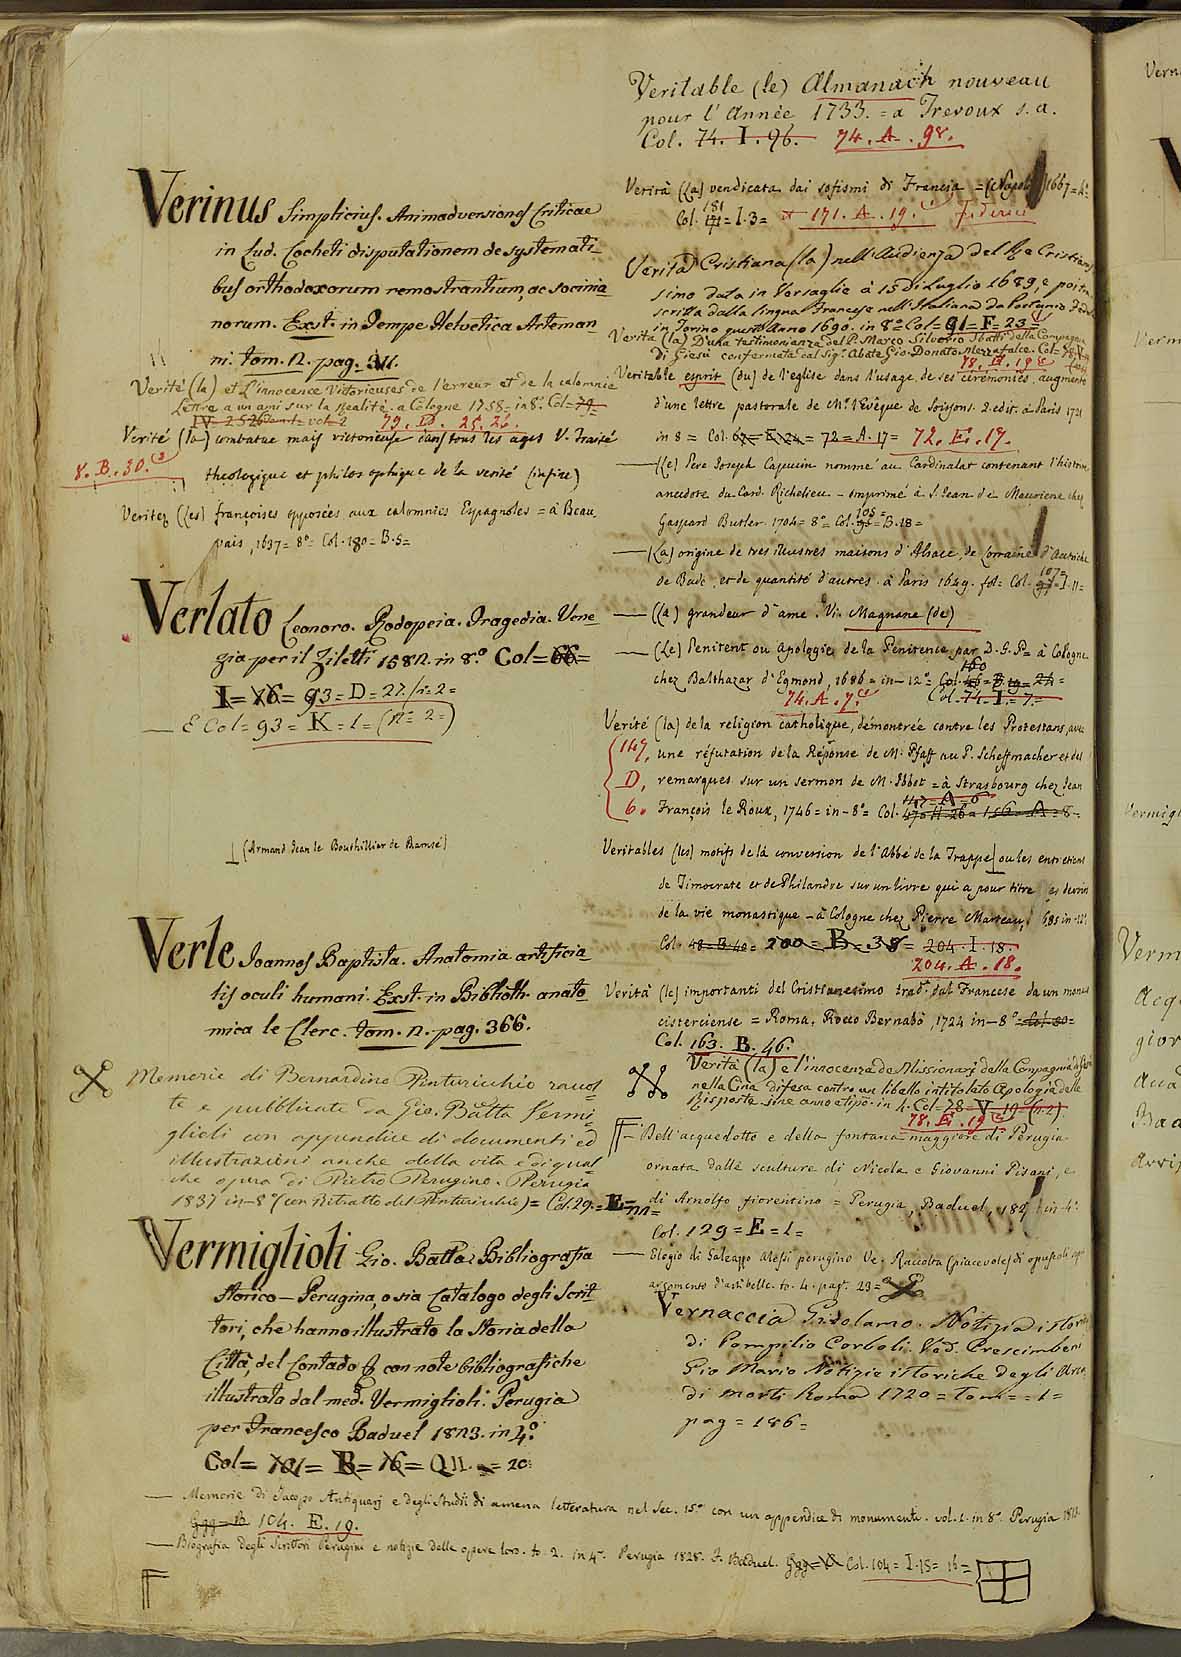 Verinus Simplicius. Animadversiones Criticae
in Lud. Cocheti disputationem de systemati-
bus orthodoxorum remostrantium, ac socinia
norum. Exst. in Tempe Helvetica Arteman
ni. tom. 2. pag. 311.
Verité (la) et L'innocence Victorieuses de l'erreur et de la calomnie
Lettre a un ami sur la Realité. a Cologne 1758= in 8º. Col= 79=
79. D. 25. 26.
Verité (la) combatue mais victorieuse dans tous les ages V. Traité
8. B. 30.
theologique et philosophique de la verité (infire)
Veritez (les) françoises opposées aux calomnies Espagnoles = à Beau
vais, 1637= 8º= Col. 180= B. 5=
Verlato Leonoro. Rodopeia. Tragedia. Vene
zia per il Ziletti 1582. in 8.º Col= 66=
I= 16= 93= D= 27. (n= 2=
— E Col= 93= K= 1= (n= 2=)
⊥ (Armand Jean le Bouthillier de Ransé)
Verle Joannes Baptista. Anatomia artificia
lis oculi humani. Exst. in Biblioth. anato
mica le Clerc. tom. 2. pag. 366.
Memorie di Bernardino Pinturicchio raccol=
te e pubblicate da Gio. Batta Vermi=
glioli con appendice di documenti ed
illustrazioni anche della vita e di qual
che opera di Pietro Perugino. Perugia
1837 in-8º (con Ritratto del Pinturicchio)= Col. 29.= E=
Vermiglioli Gio. Batta. Bibliografia
Storico-Perugina, o sia Catalogo degli Scrit
tori, che hanno illustrato la Storia della
Città, del Contado & con note bibliografiche
illustrata dal med. Vermiglioli. Perugia
per Francesco Baduel 1823. in 4º.
Col= 101= B= 16= Q II. = 20
— Memorie di Jacopo Antiquarj e degli Studii di amena letteratura nel Sec. 15º con un appendice di monumenti. vol. 1. in 8º. Perugia
Ggg= B 104. E. 19.
— Biografia degli Scrittori Perugini e notizie delle opere loro. to. 2. in 4º. Perugia 1828. F. Baduel. Col. 104= I. 15= 16=
Veritable (le) Almanach nouveau
pour l'Année 1733. = a Trevoux s. a.
Col. 74. I. 96. 74. A. 98.
Verità (la) vendicata dai sofismi di Francia = (Napoli) 1667= 4º
Col. 181 = I. 3= 171. A. 19.
Verità Cristiana (la) nell'Audienza del Re Cristianis
simo data in Versaglie à 15 di Luglio 1689, e poi tra
scritta dalla lingua Francese nell'Italiana da
in Torino quest'Anno 1690. in 8º Col= 91= F= 23=
Verità (la) D'una testimonianza del P. Marco Silverio della Compagnia
di Giesù confermata dal Sig. Abate Gio. Donato Mezzafalce. Col= 78
78. E. 19
Veritable esprit (du) de l'eglise dans l'usage de ses cérémonies. augmenté
d'une lettre pastorale de Mr. l'Evêque de Soissons. 2. edit. à Paris 1721
in 8= Col. = 72= A. 17= 72. E. 17.
— (le) Pere Joseph Capucin nommé au Cardinalat contenant l'histoire
anecdote du Card. Richelieu - imprimé à S. Jean de Mauriene chez
Gaspard Butler. 1704= 8º= Col. 105= B. 18=
— (la) origine de tres illustres maisons d'Alsace, de Lorraine d'Autriche
de Bade, et de quantité d'autres. à Paris 1649. fol= Col. 107= I. 11=
— (la) grandeur d'ame. Vi. Magnane (de)
— (Le) Penitent ou apologie de la Penitence par D. G. P= à Cologne
chez Balthazar d'Egmond, 1686= in-12º= Col. 160
74. A. 7. Col. 74. I. = 7=
Verité (la) de la religion catholique, démontrée contre les Protestans, avec
147, une réfutation de la Réponse de M. Pfaff au P. Scheffmacher et des
D, remarques sur un sermon de M. Ibbot = à Strasbourg chez Jean
6. François le Roux, 1746= in-8º= Col. 156= A= 8
Veritables (les) motifs de la conversion de l'Abbé de la Trappe ⊥ ou les entretiens
de Timocrate et de Philandre sur un livre qui a pour titre les devoirs
de la vie monastique - à Cologne chez Pierre Marteau, 1685 in-12º.
Col. 48= B. 40= 200= B= 38= 204. I. 18.
204. A. 18.
Verità (le) importanti del Cristianesimo trad. dal Francese da un monaco
cisterciense = Roma, Rocco Bernabò, 1724 in-8º= Col. 80=
Col. 163. B. 46.
Verità (la) e l'innocenza de Missionarj della Compagnia di Giesù
nella Cina difesa contro un libello intitolato Apologia delle
Risposte. sine anno e tipo. in 4. Col= 78= V= 19= (n. 2)
78. E. 19
Dell'acquedotto e della fontana maggiore di Perugia
ornata dalle sculture di Nicola e Giovanni Pisani, e
di Arnolfo fiorentino = Perugia, Baduel, 1827 in-4º.
Col. 129= E= 1=
— Elogio di Galeazzo Alessi perugino Ve. Raccolta (piacevole) di opuscoli
argomento d'arti belle. to. 4. pag. 23=
Vernaccia Girolamo. Notizia istorica
di Pompilio Corboli. Ved. Crescimbeni
Gio Mario Notizie istoriche degli Arca
di morti Roma 1720= Tom= 1=
pag= 186=